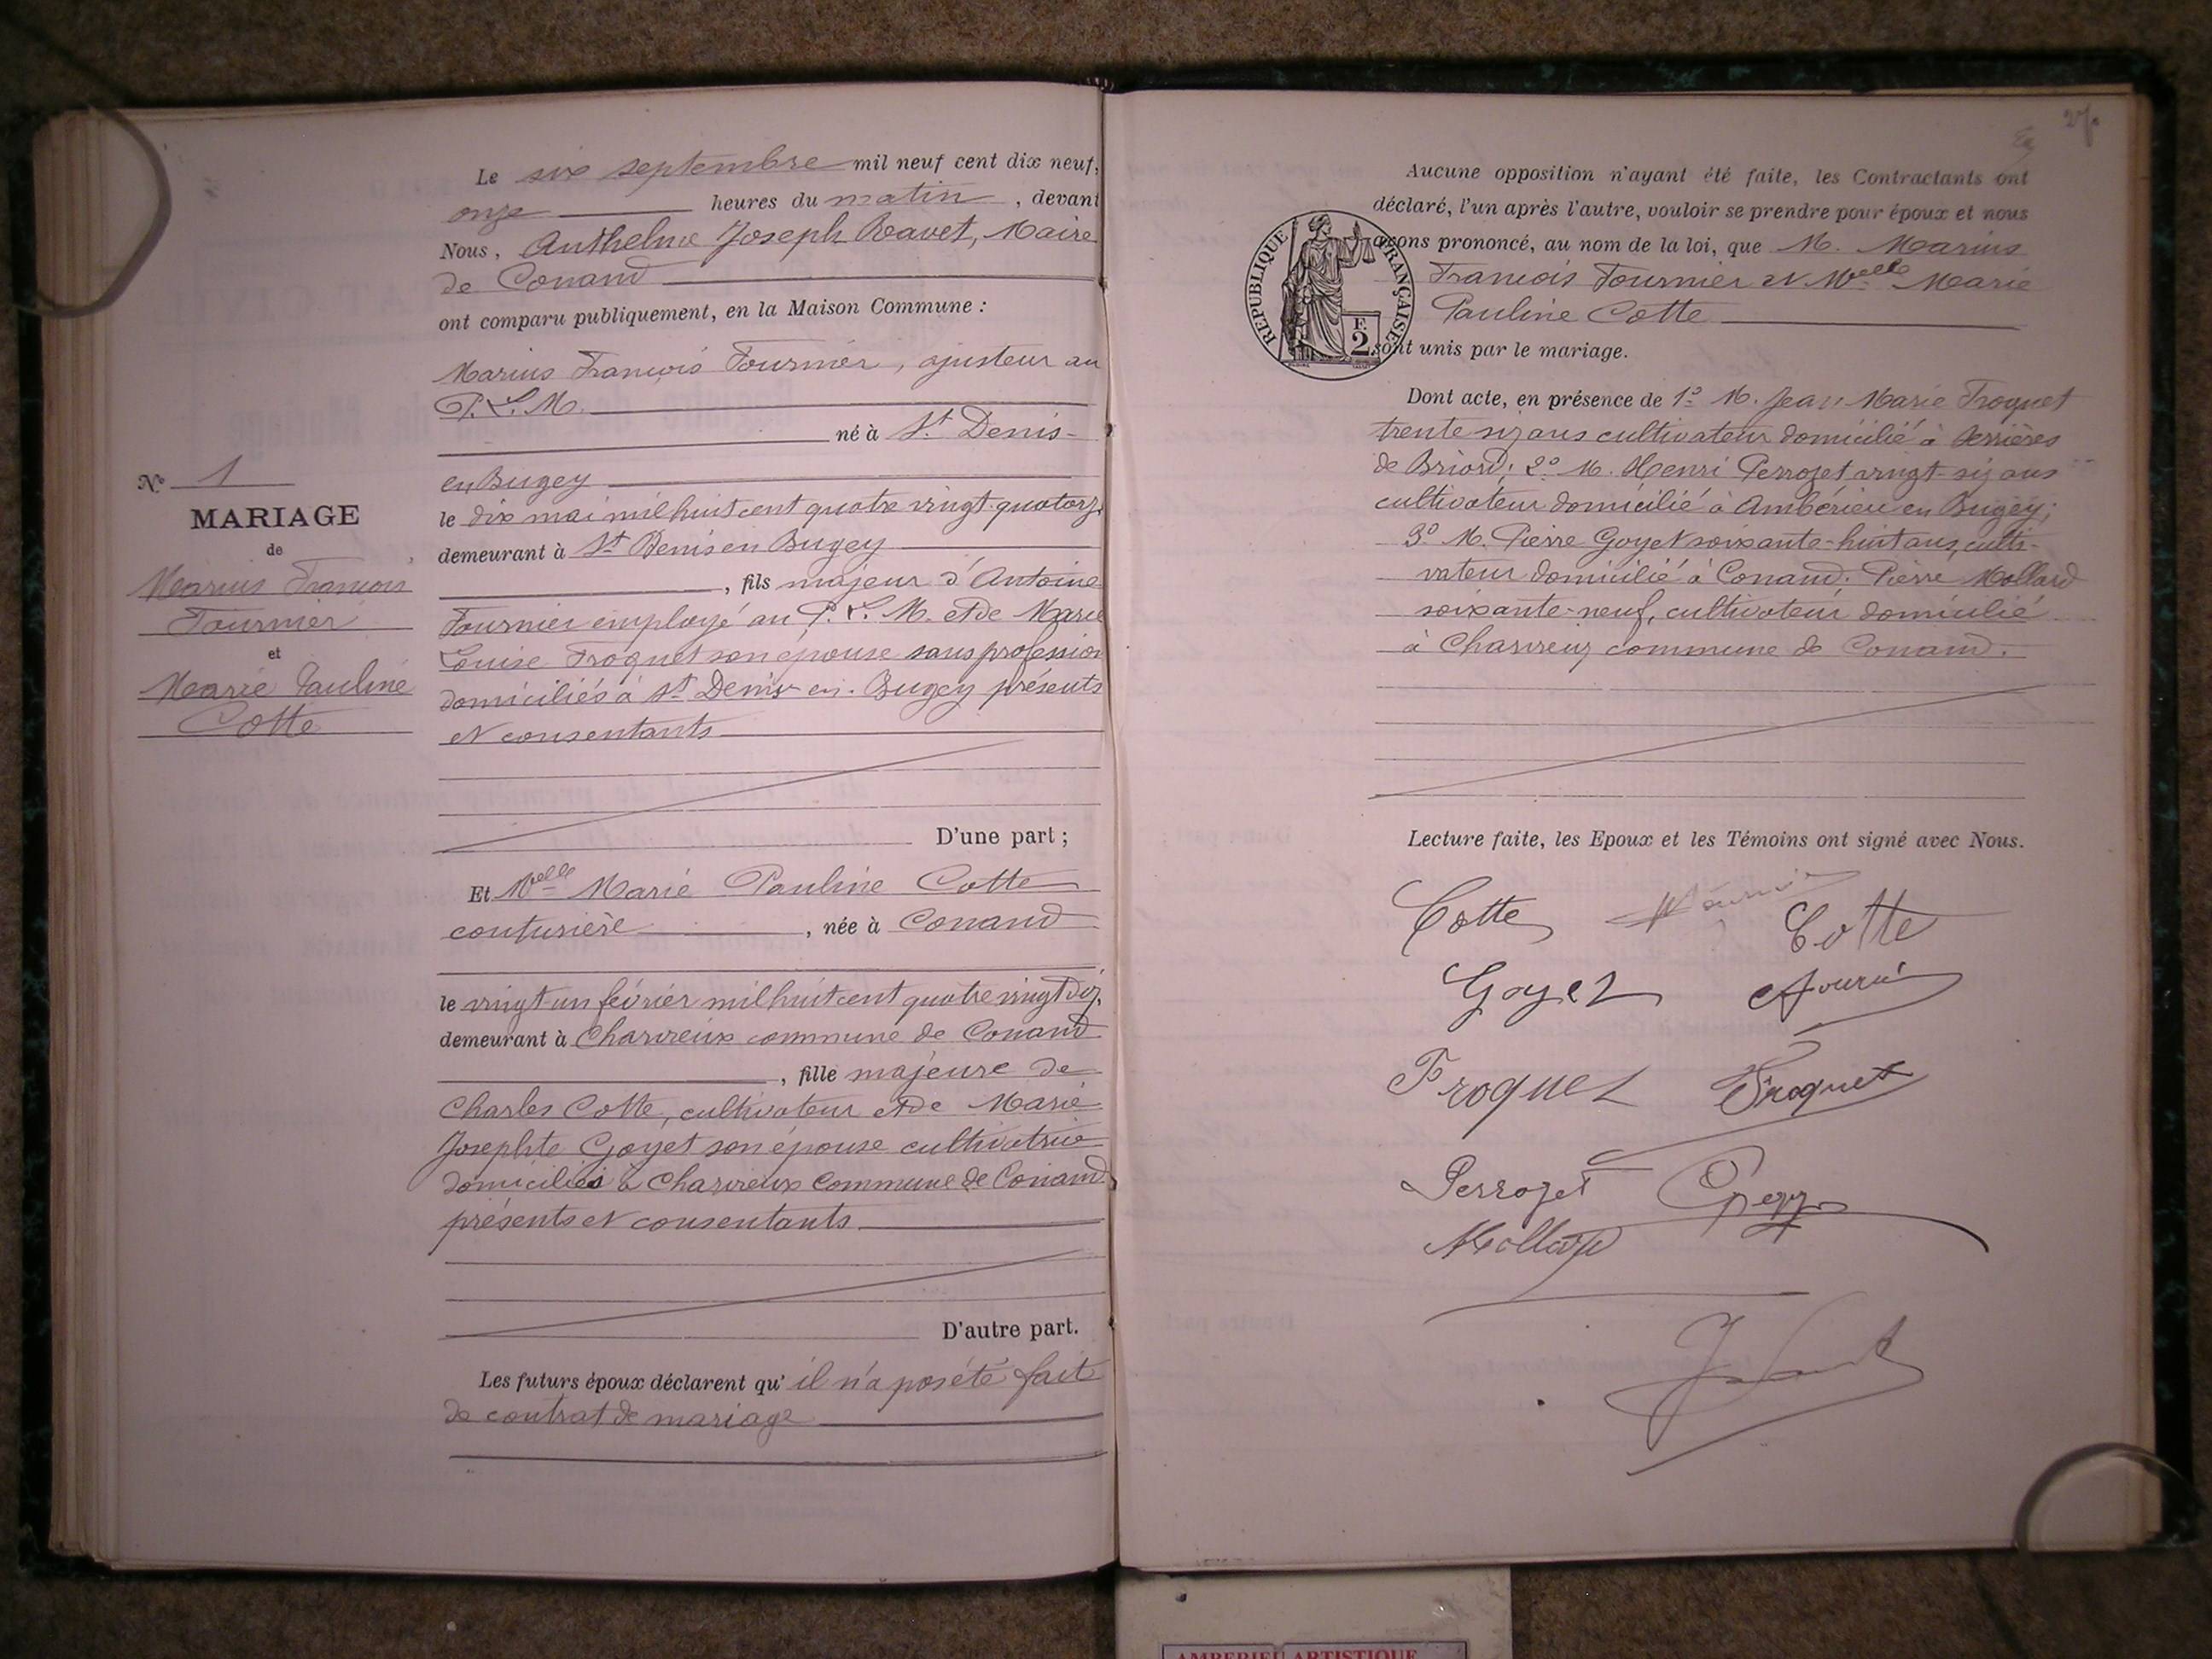 Le six septembre mil neuf cent dix neuf,
onze heures du matin, devant
Nous, Anthelme Joseph Ravet, Maire
de Conand
ont comparu publiquement, en la Maison Commune :
Marius François Fournier, ajusteur au
P. L. M.
né à St. Denis-
en Bugey
le dix mai mil huit cent quatre vingt quatorze
demeurant à St Denis en Bugey
, fils majeur d'Antoine
Fournier employé au P. L. M. et de Marie
Louise Troquet son épouse sans profession
domiciliés à St Denis en Bugey présents
et consentants
D'une part ;
Et Melle Marie Pauline Cotte
couturière, née à Conand
le vingt un février mil huit cent quatre vingt dix,
demeurant à Charvieux commune de Conand
, fille majeure de
Charles Cotte, cultivateur et de Marie
Josephte Goyet son épouse cultivatrice
domiciliés à Charvieux Commune de Conand
présents et consentants
D'autre part.
Les futurs époux déclarent qu'il n'a pas été fait
de contrat de mariage
No 1
MARIAGE
de
Marius François
Fournier
et
Marie Pauline
Cotte
27
Aucune opposition n'ayant été faite, les Contractants ont
déclaré, l'un après l'autre, vouloir se prendre pour époux et nous
avons prononcé, au nom de la loi, que M. Marius
François Fournier et Melle Marie
Pauline Cotte
sont unis par le mariage.
REPUBLIQUE FRANÇAISE
F.
2
Dont acte, en présence de 1o M. Jean Marie Troquet
trente six ans cultivateur domicilié à Serrières
de Briord; 2o M. Henri Perrozet vingt-six ans
cultivateur domicilié à Ambérieu en Bugey;
3o M. Pierre Goyet soixante-huit ans, culti-
vateur domicilié à Conand. Pierre Mollard
soixante-neuf, cultivateur domicilié
à Charvieux commune de Conand.
Lecture faite, les Epoux et les Témoins ont signé avec Nous.
Cotte Fournier Cotte
Goyet Fournier
Troquet Troquet
Perrozet
Mollard
AMBERIEU ARTISTIQUE